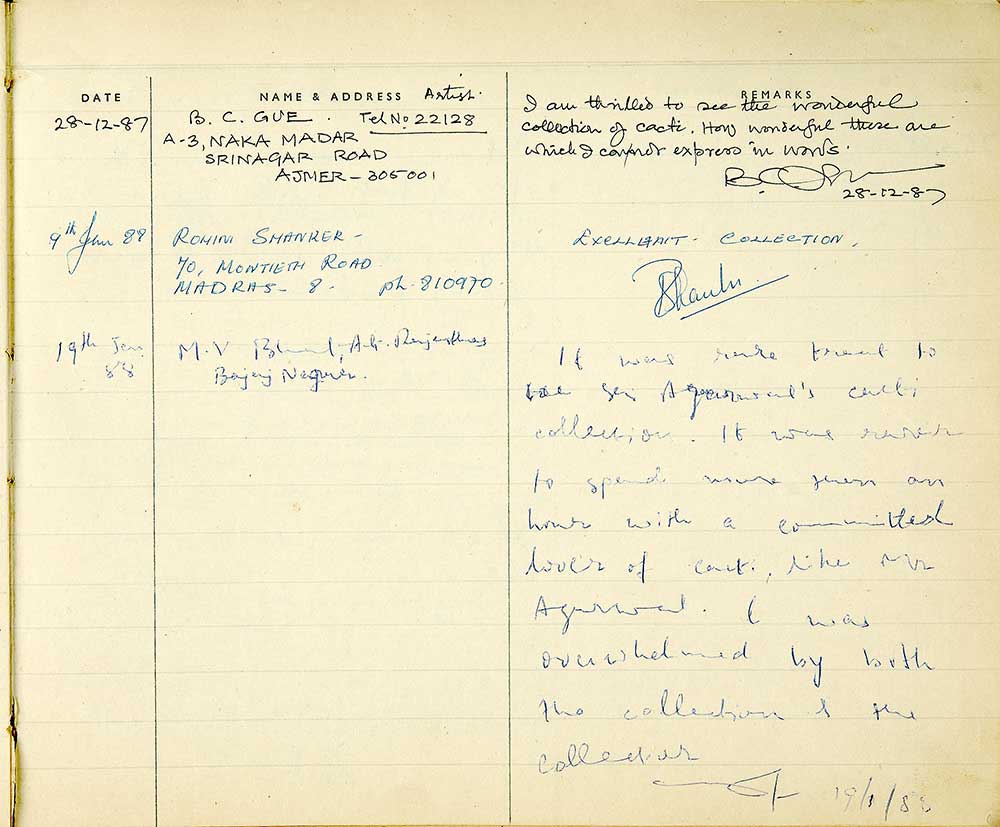 DATE
NAME & ADDRESS
REMARKS
28-12-87
B. C. GUE. Artist.
Tel No. 22128
A-3, NAKA MADAR
SRINAGAR ROAD
AJMER - 305001
I am thrilled to see the wonderful
collection of cacti. How wonderful these are
which I cannot express in words.
28-12-87
9th Jan 88
ROHINI SHANKER -
70, MONTIETH ROAD
MADRAS - 8. ph. 810970.
EXELLENT COLLECTION.
19th Jan
88
M. V.
Bajaj Nagar.
It was rare treat to
see Agarwal's cacti
collection. It was rarer
to spend more than an
hour with a committed
lover of cacti, like Mr
Agarwal. I was
overwhelmed by both
the collection & the
collector
19/1/88